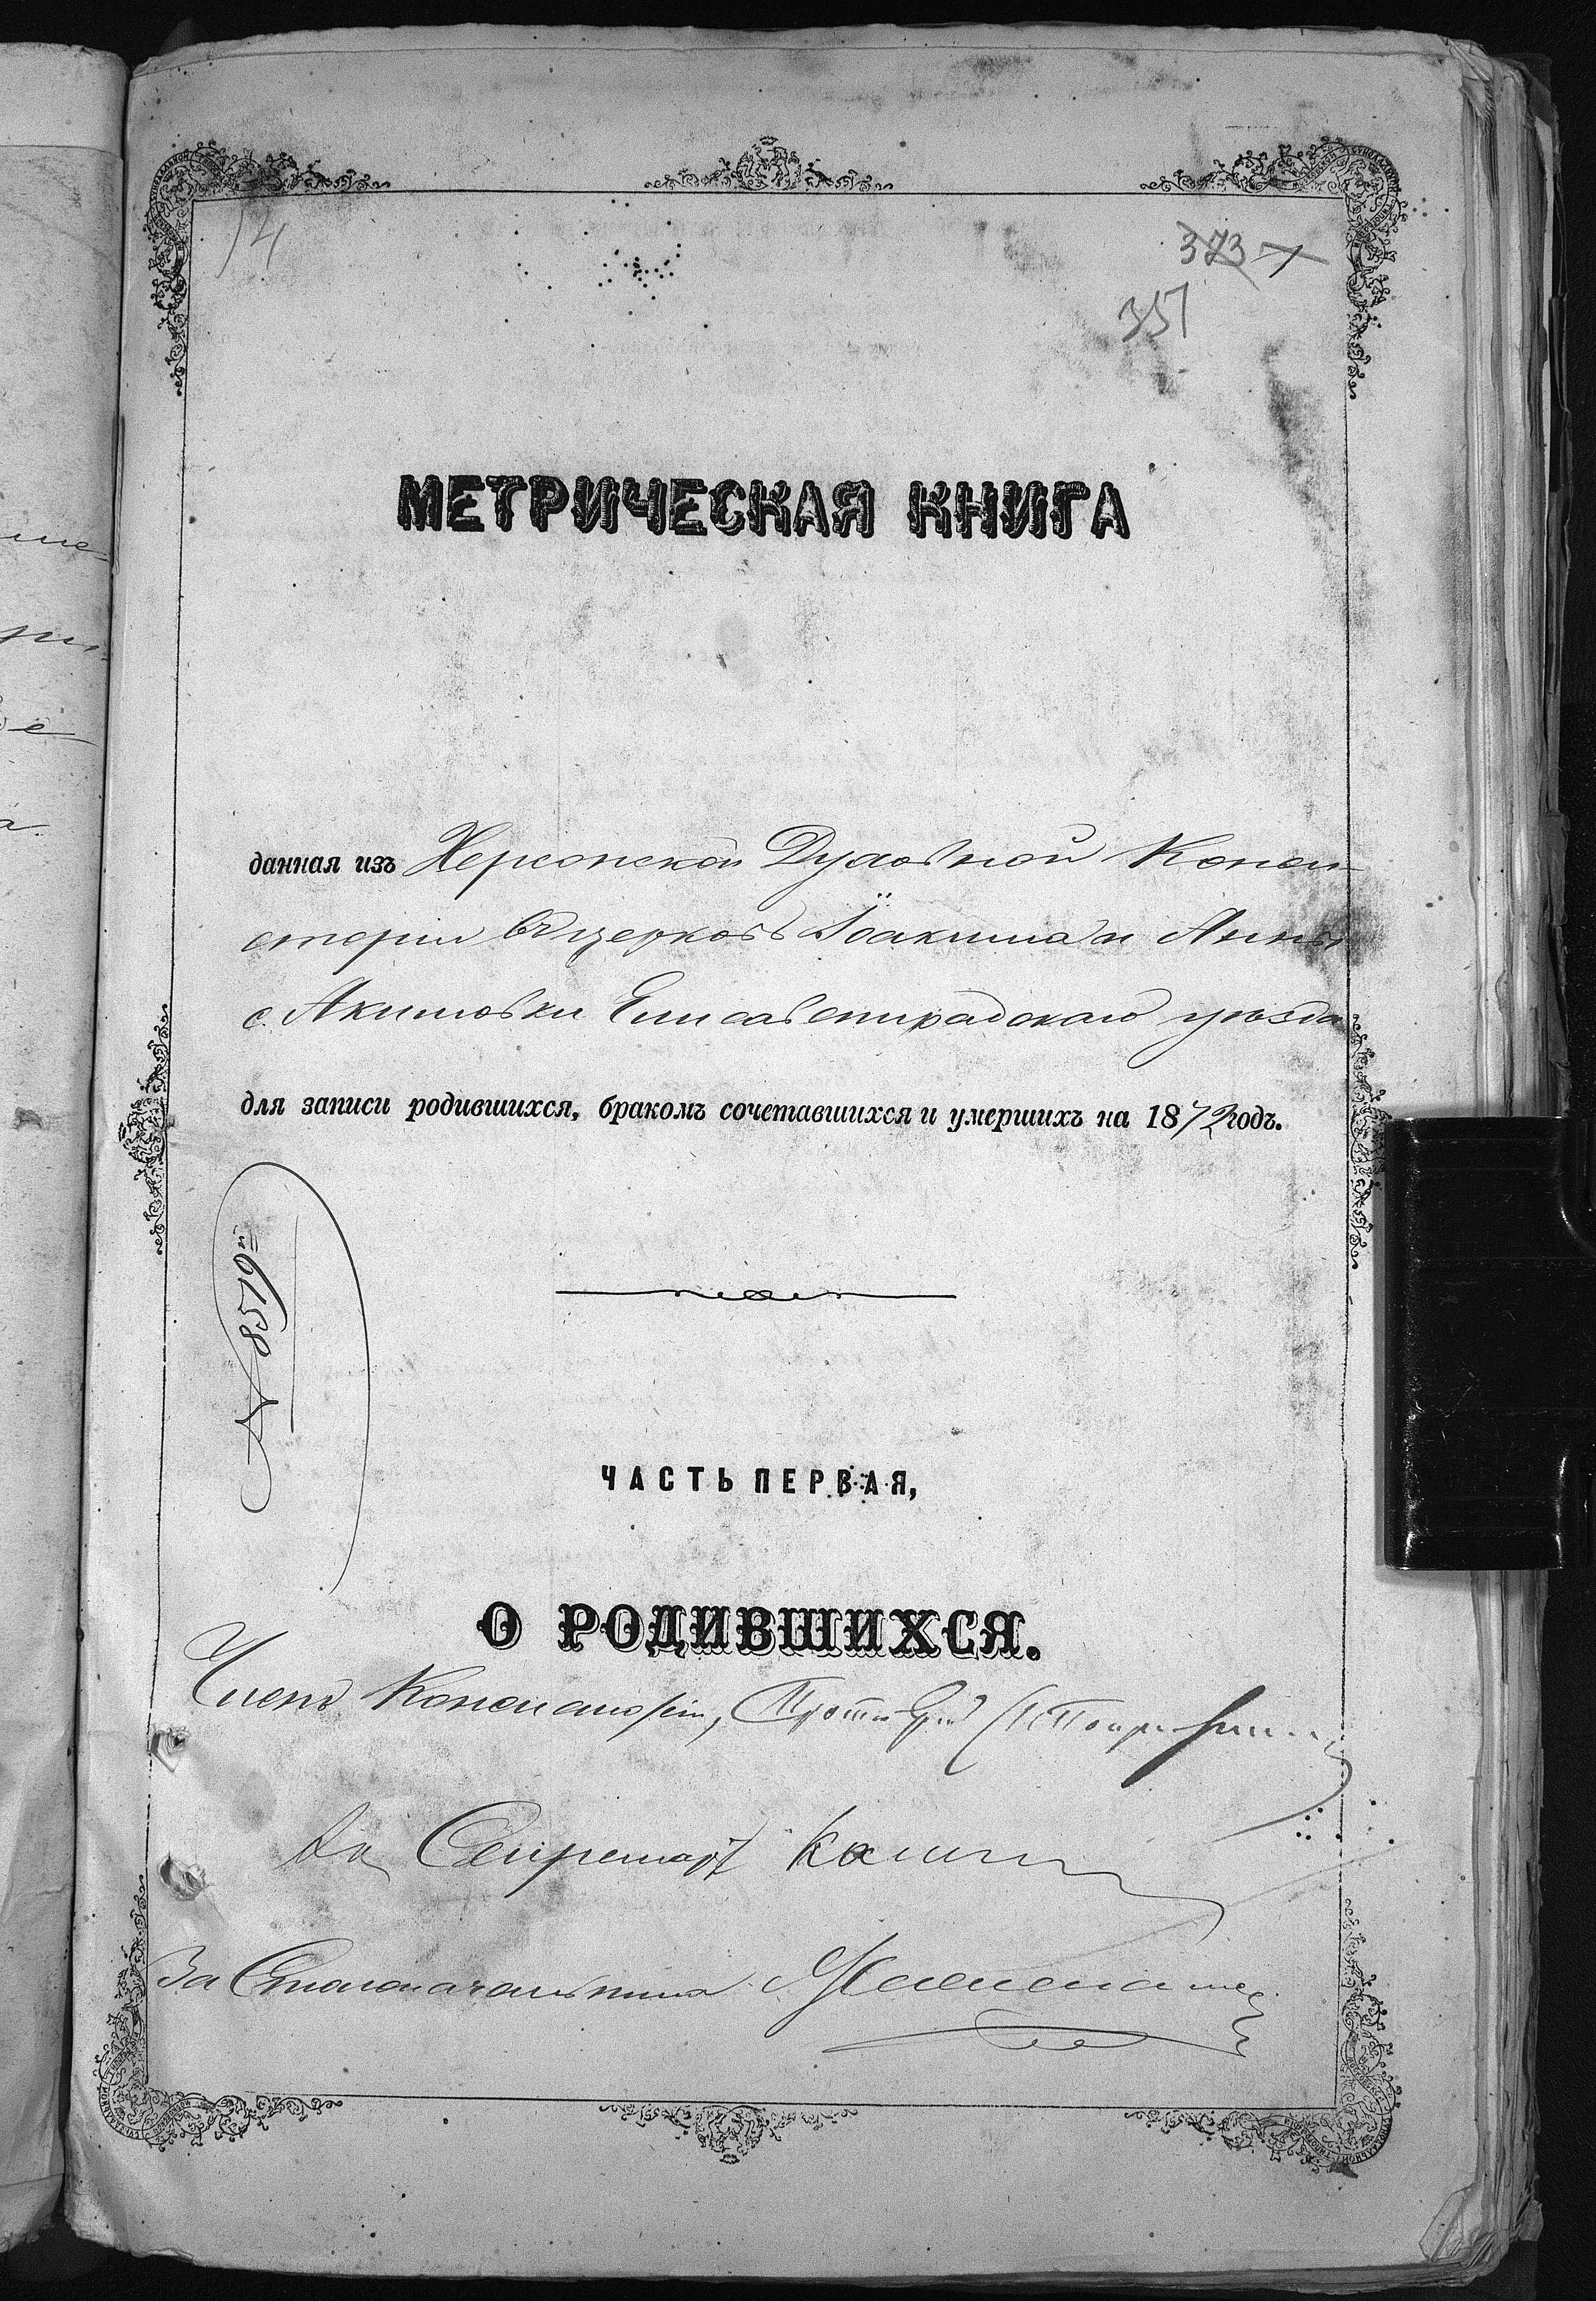 14
373
351
МЕТРИЧЕСКАЯ КНИГА
данная изъ Херсонской Духовной Конси-
сторіи въ церковь Іоакима и Анны
с. Акимовки Елисаветградскаго уѣзда
для записи родившихся, бракомъ сочетавшихся и умершихъ на 1872 годъ.
№ 8519й
ЧАСТЬ ПЕРВАЯ,
О РОДИВШИХСЯ.
Членъ Консисторіи,
За Секретаря
За Столоначальника